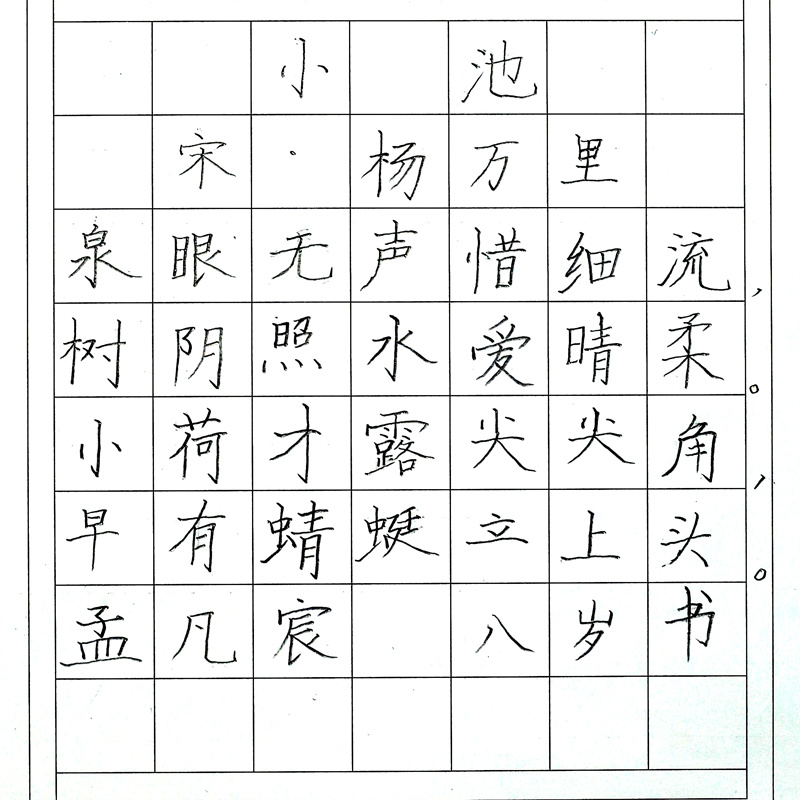 小池
宋·杨万里
泉眼无声惜细流，
树阴照水爱晴柔。
小荷才露尖尖角，
早有蜻蜓立上头。
孟凡宸 八岁书